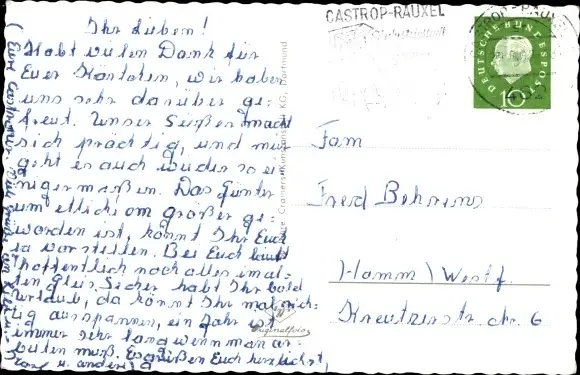 Ihr Lieben!
Habt vielen Dank für
Euer Kärtchen, wir haben
uns sehr darüber ge-
freut. Unser Süßer macht
sich prächtig, und mir
geht es auch wieder so ei-
nigermaßen. Das Günter
um etliche cm größer ge-
worden ist, könnt Ihr Euch
ja vorstellen. Bei Euch läuft
hoffentlich noch alles im al-
ten Gleis. Sicher habt Ihr bald
Urlaub, da könnt Ihr mal rich-
tig ausspannen, ein Jahr ist
immer sehr lang wenn man ar-
beiten muß. Es grüßen Euch herzlichst,
CASTROP-RAUXEL
DEUTSCHE BUNDESPOST
10
Cramers Kunstanstalt KG, Dortmund
Originalfoto
Fam
Fred Behrens
Hamm / Westf.
Kreutzerstr. 6